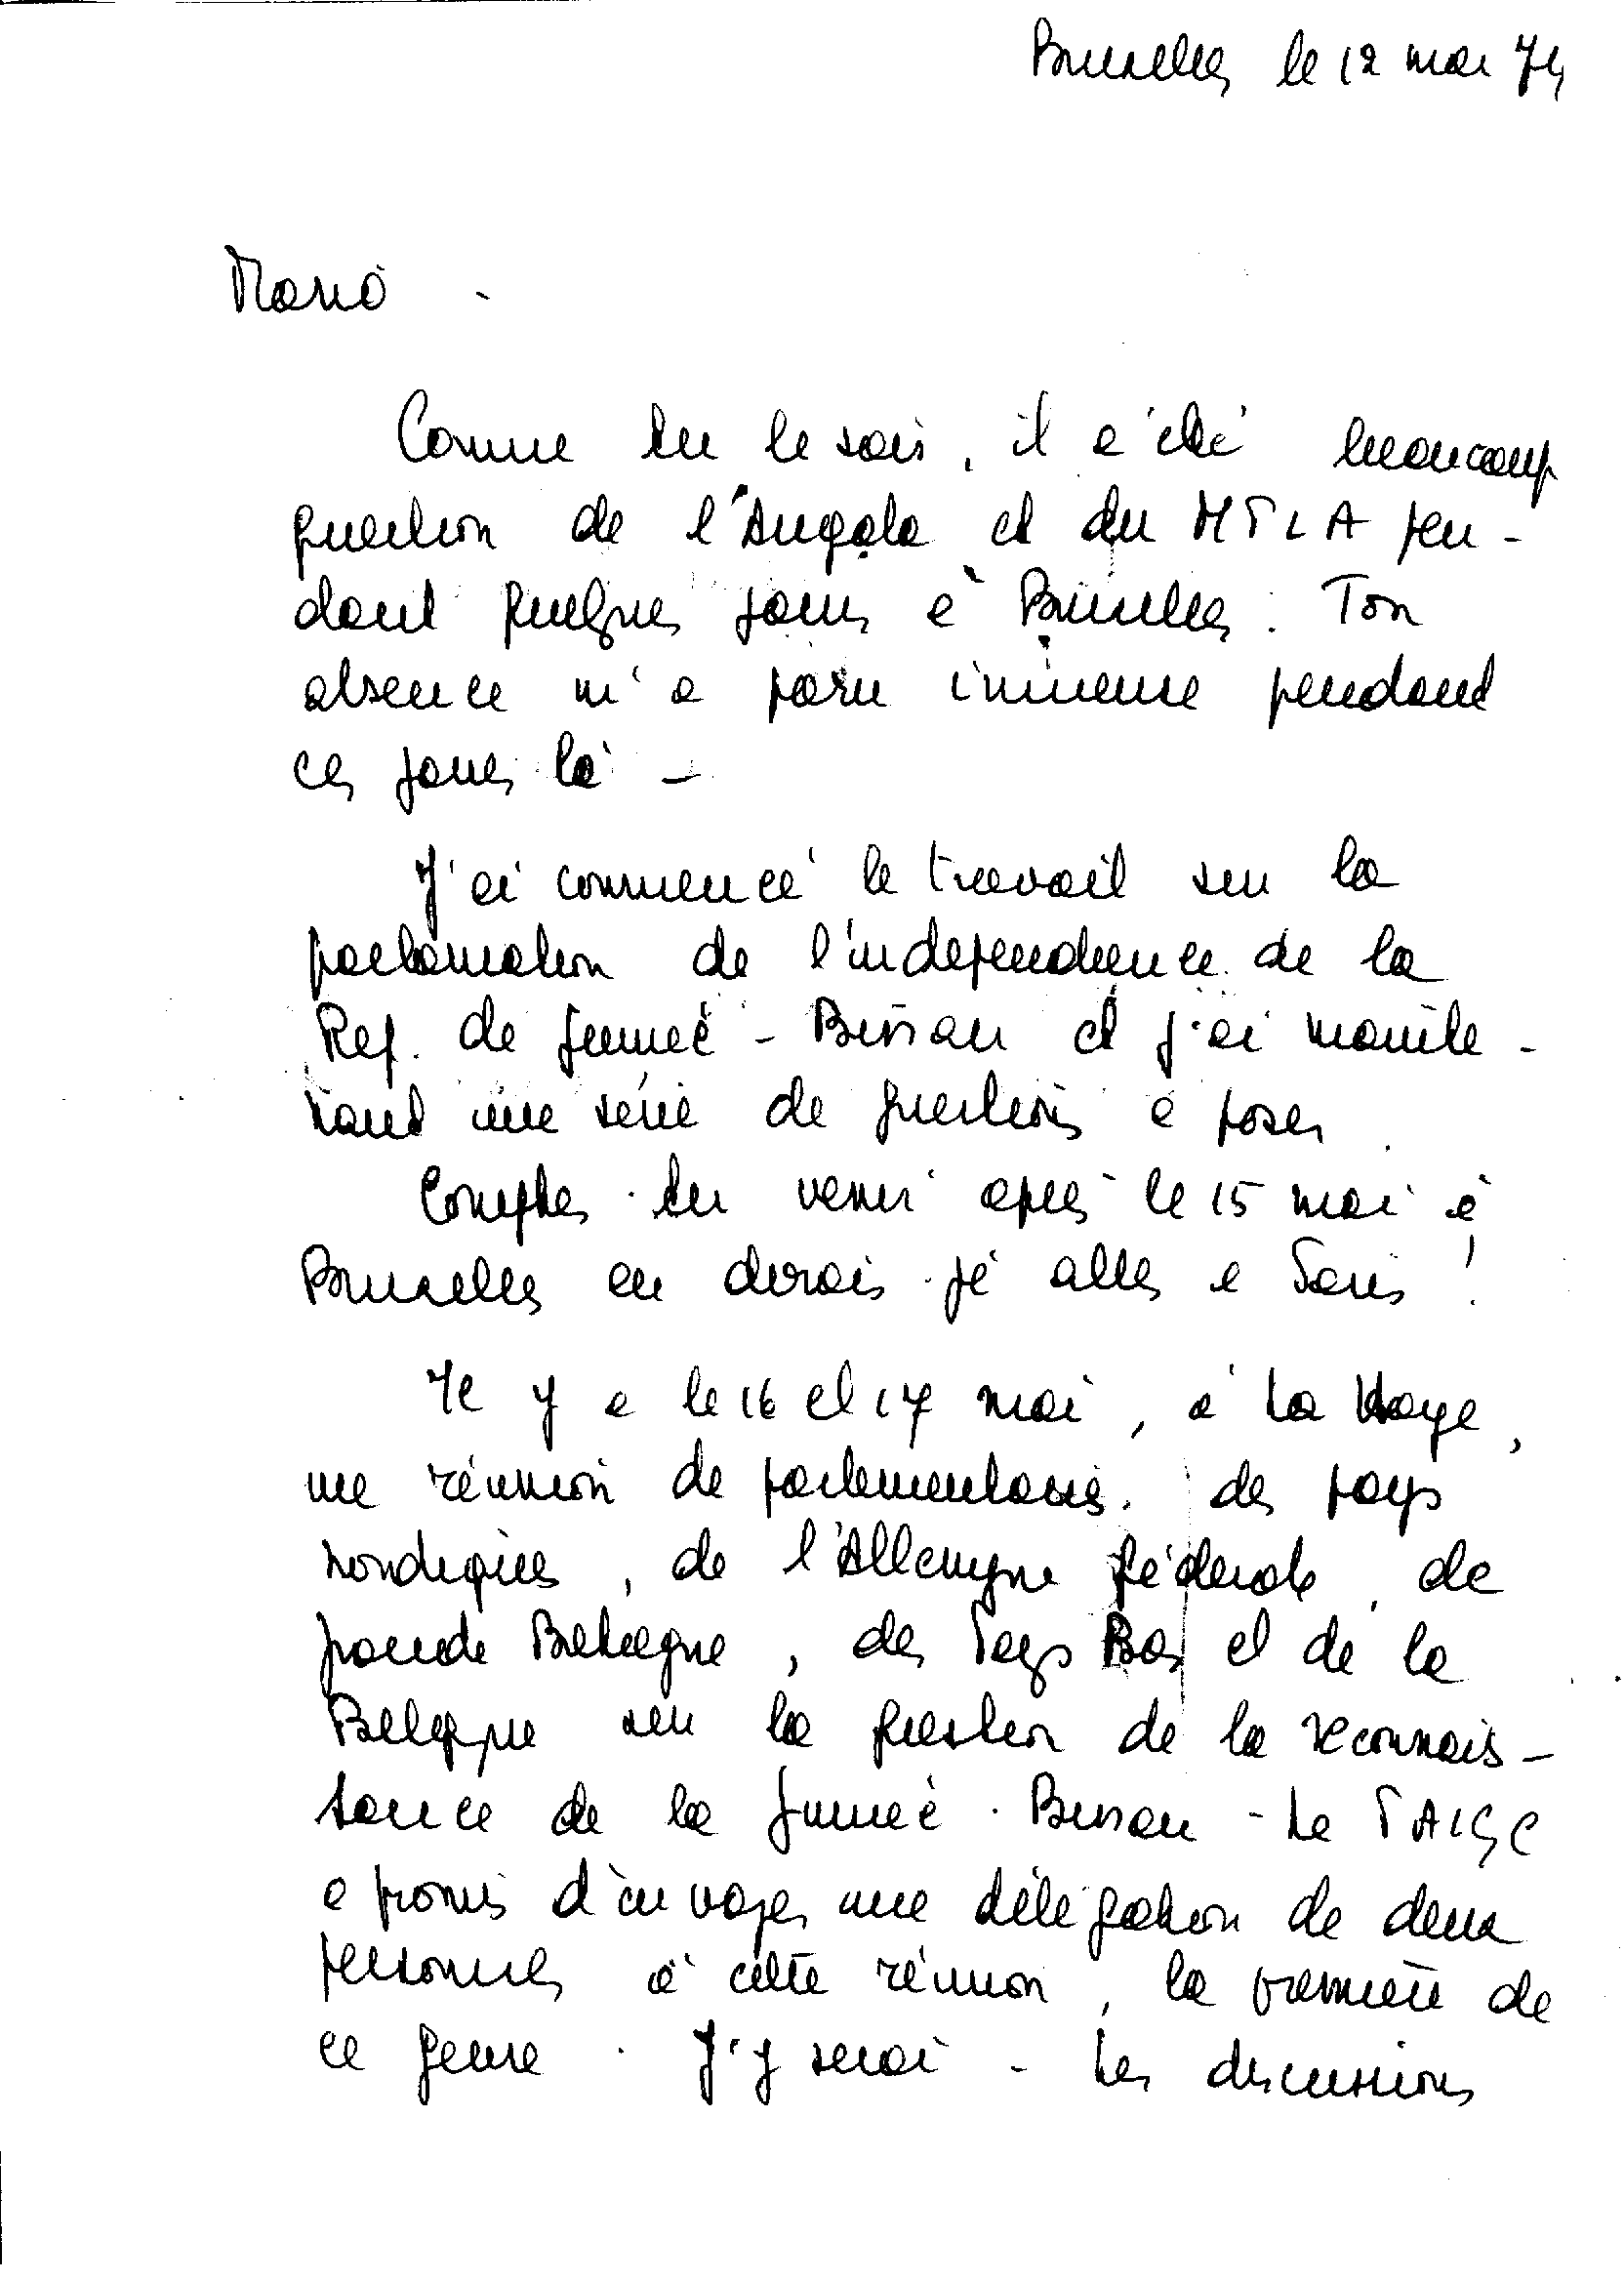 Bruxelles le 12 mai 74
Mario -
Comme tu le sais, il a été beaucoup
question de l'Angola et du MPLA pen-
dant quelques jours à Bruxelles. Ton
absence m'a paru immense pendant
ces jours là -
J'ai commencé le travail sur la
proclamation de l'independence de la
Rep. de Guineé - Bissau et j'ai mainte-
nant une série de questions à poser.
Comptes-tu venir après le 15 mai à
Bruxelles ou devrais-je aller à Paris !
Il y a le 16 et 17 mai, à La Haye,
une réunion de parlementaires. des pays
nordiques, de l'Allemagne fédérale, de
grande Bretagne, des Pays Bas et de la
Belgique sur la question de la reconnais-
sance de la Guineé. Bissau - Le PAIGC
a promis d'envoyer une délégation de deux
personnes à cette réunion, la première de
ce genre. J'y serai - Les discussions